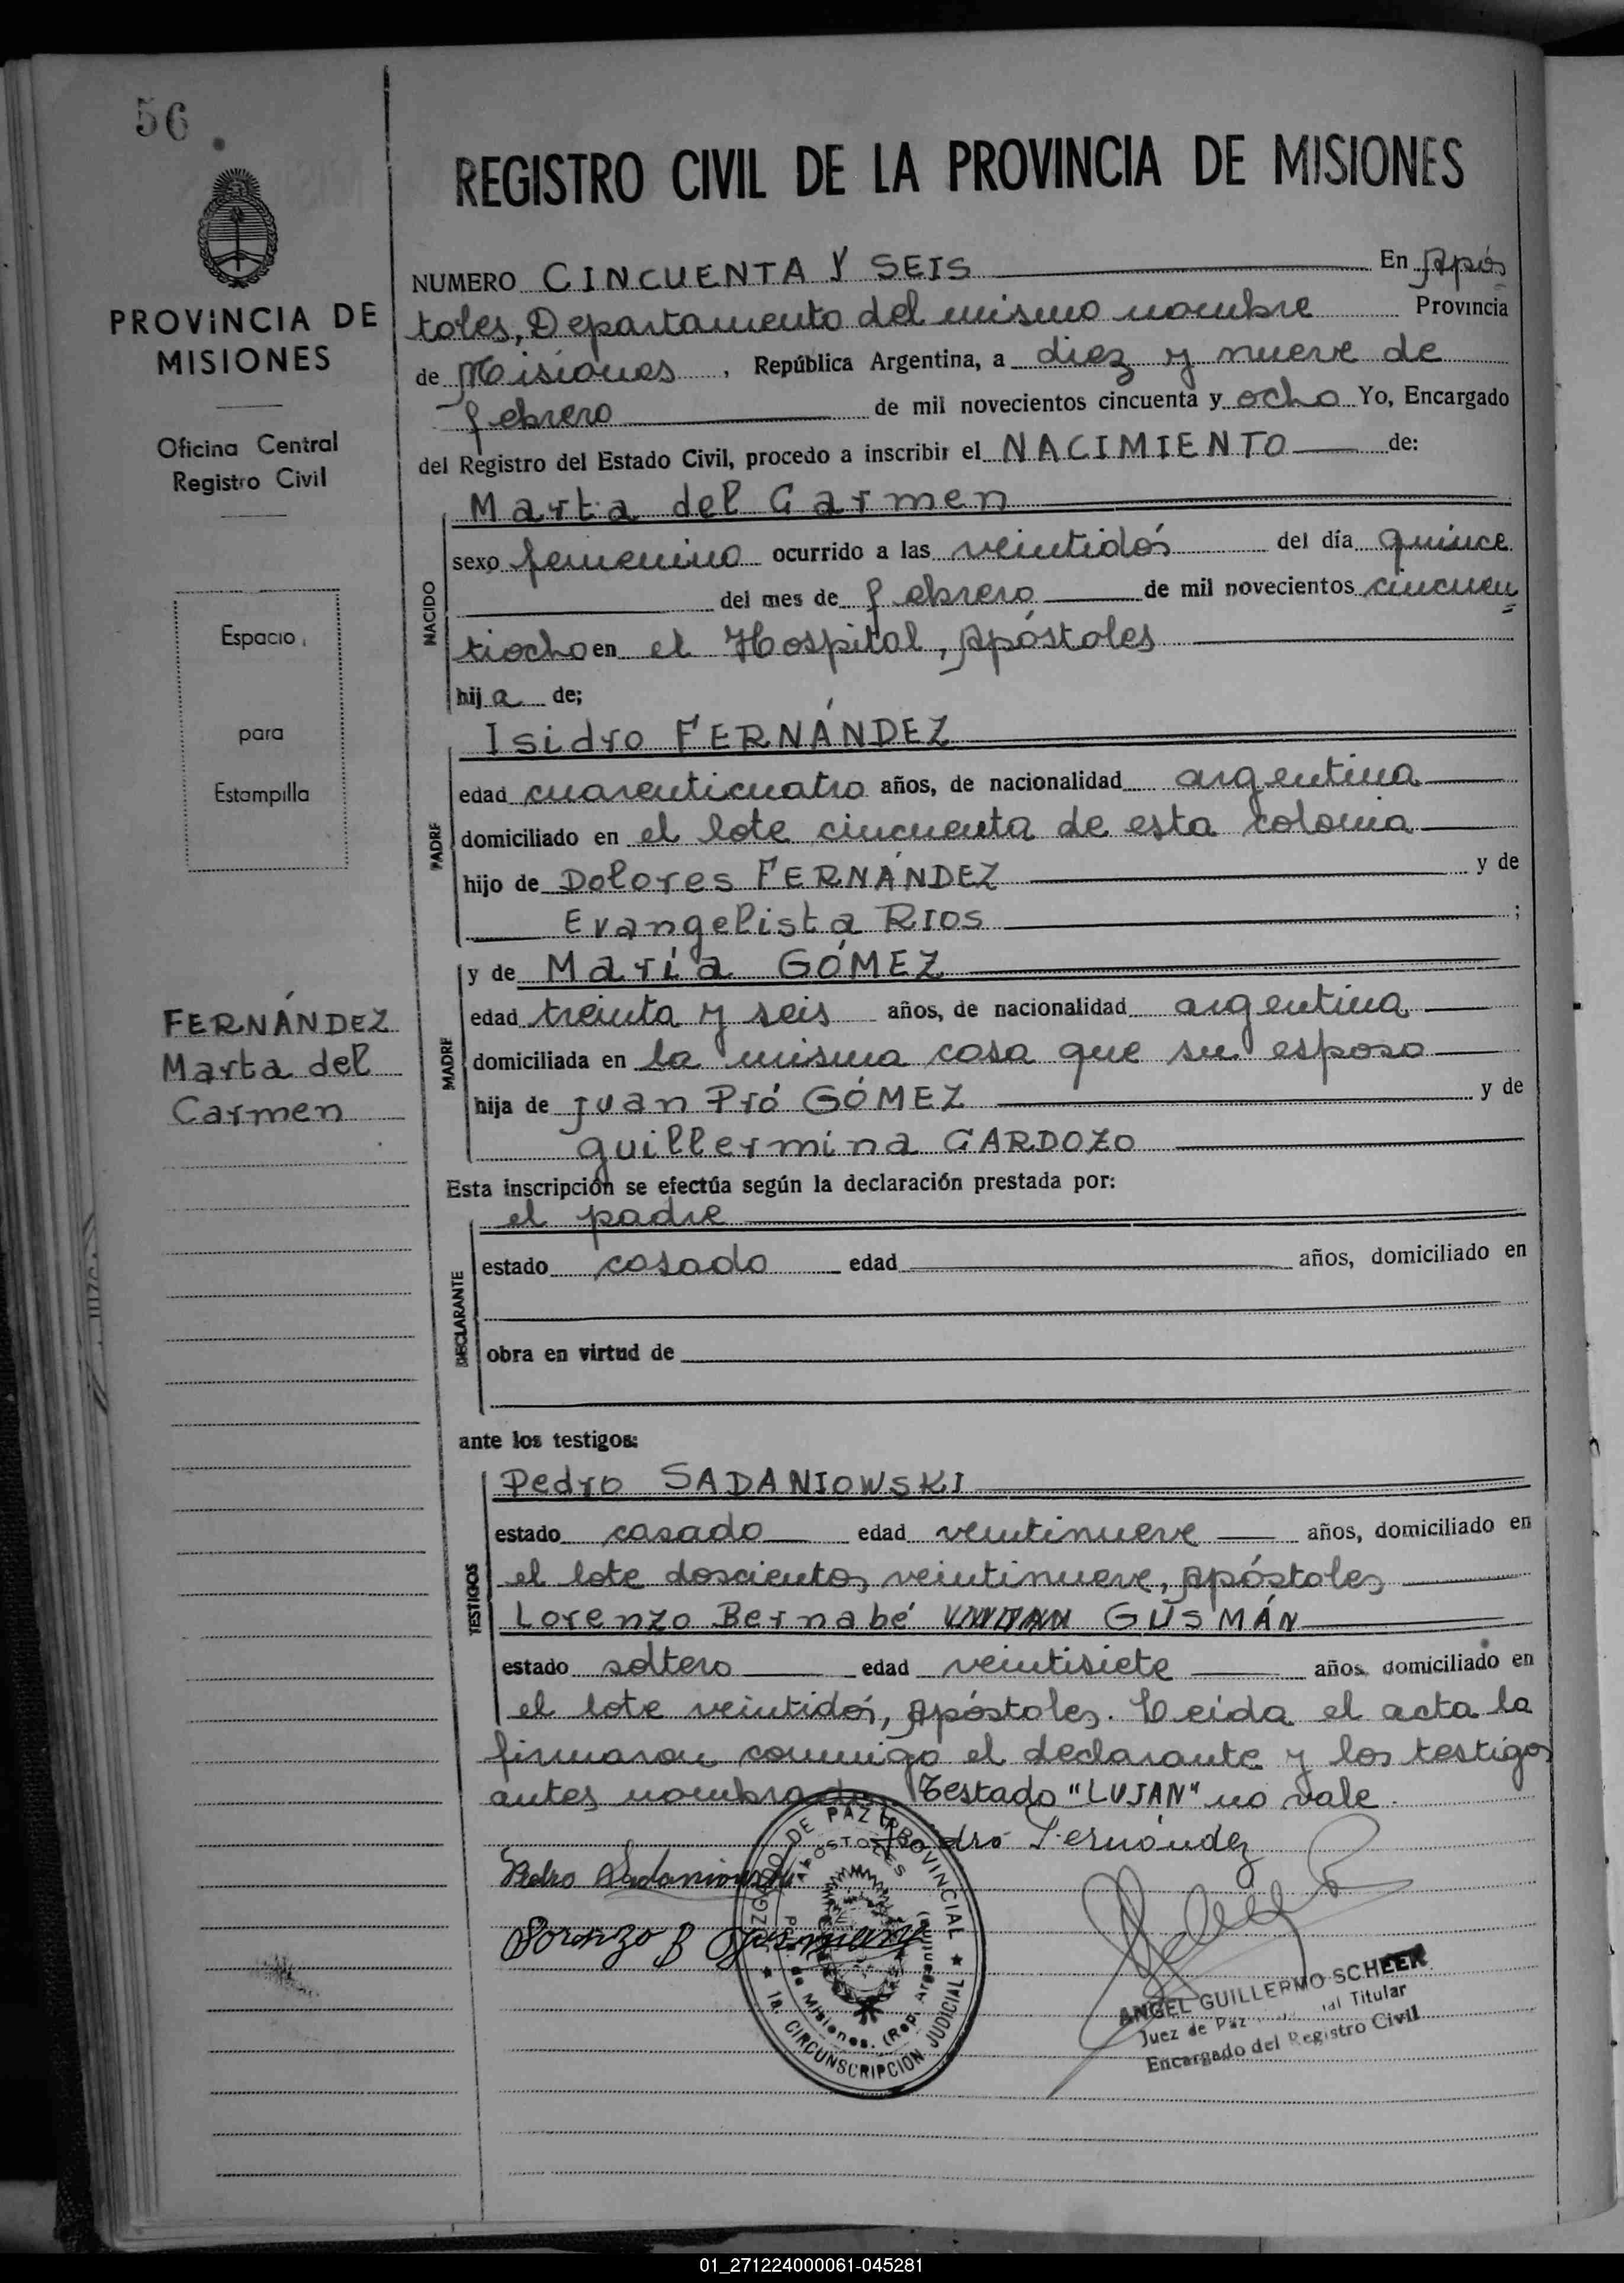 56
REGISTRO CIVIL DE LA PROVINCIA DE MISIONES
PROVINCIA DE
MISIONES
Oficina Central
Registro Civil
Espacio
para
Estampilla
FERNÁNDEZ
Marta del
Carmen
NUMERO CINCUENTA Y SEIS En Após
toles, Departamento del mismo nombre Provincia
de Misiones, República Argentina, a diez y nueve de
febrero de mil novecientos cincuenta y ocho Yo, Encargado
del Registro del Estado Civil, procedo a inscribir el NACIMIENTO de:
NACIDO
Marta del Carmen
sexo femenino ocurrido a las veintidós del día quince
del mes de febrero de mil novecientos cincuen
tiocho en el Hospital, Apóstoles
hija de;
PADRE
Isidro FERNÁNDEZ
edad cuarenticuatro años, de nacionalidad argentina
domiciliado en el lote cincuenta de esta colonia
hijo de Dolores FERNÁNDEZ y de
Evangelista RIOS ;
MADRE
y de María GÓMEZ
edad treinta y seis años, de nacionalidad argentina
domiciliada en la misma casa que su esposo
hija de Juan Pió GÓMEZ y de
Guillermina CARDOZO
Esta inscripción se efectúa según la declaración prestada por:
DECLARANTE
el padre
estado casado edad años, domiciliado en
obra en virtud de
ante los testigos:
TESTIGOS
Pedro SADANIOWSKI
estado casado edad veintinueve años, domiciliado en
el lote doscientos veintinueve, Apóstoles
Lorenzo Bernabé LUJAN GUSMÁN
estado soltero edad veintisiete años, domiciliado en
el lote veintidós, Apóstoles. Leída el acta la
firmaron conmigo el declarante y los testigos
antes nombrados Testado "LUJAN" no vale.
Isidro Fernández
Pedro Sadaniowski
Lorenzo B Gusman
JUZGADO DE PAZ PROVINCIAL
APOSTOLES
Pcia. de Misiones. (Rep. Argentina)
1a. CIRCUNSCRIPCION JUDICIAL
ANGEL GUILLERMO SCHEER
Juez de Paz Titular
Encargado del Registro Civil
01_271224000061-045281